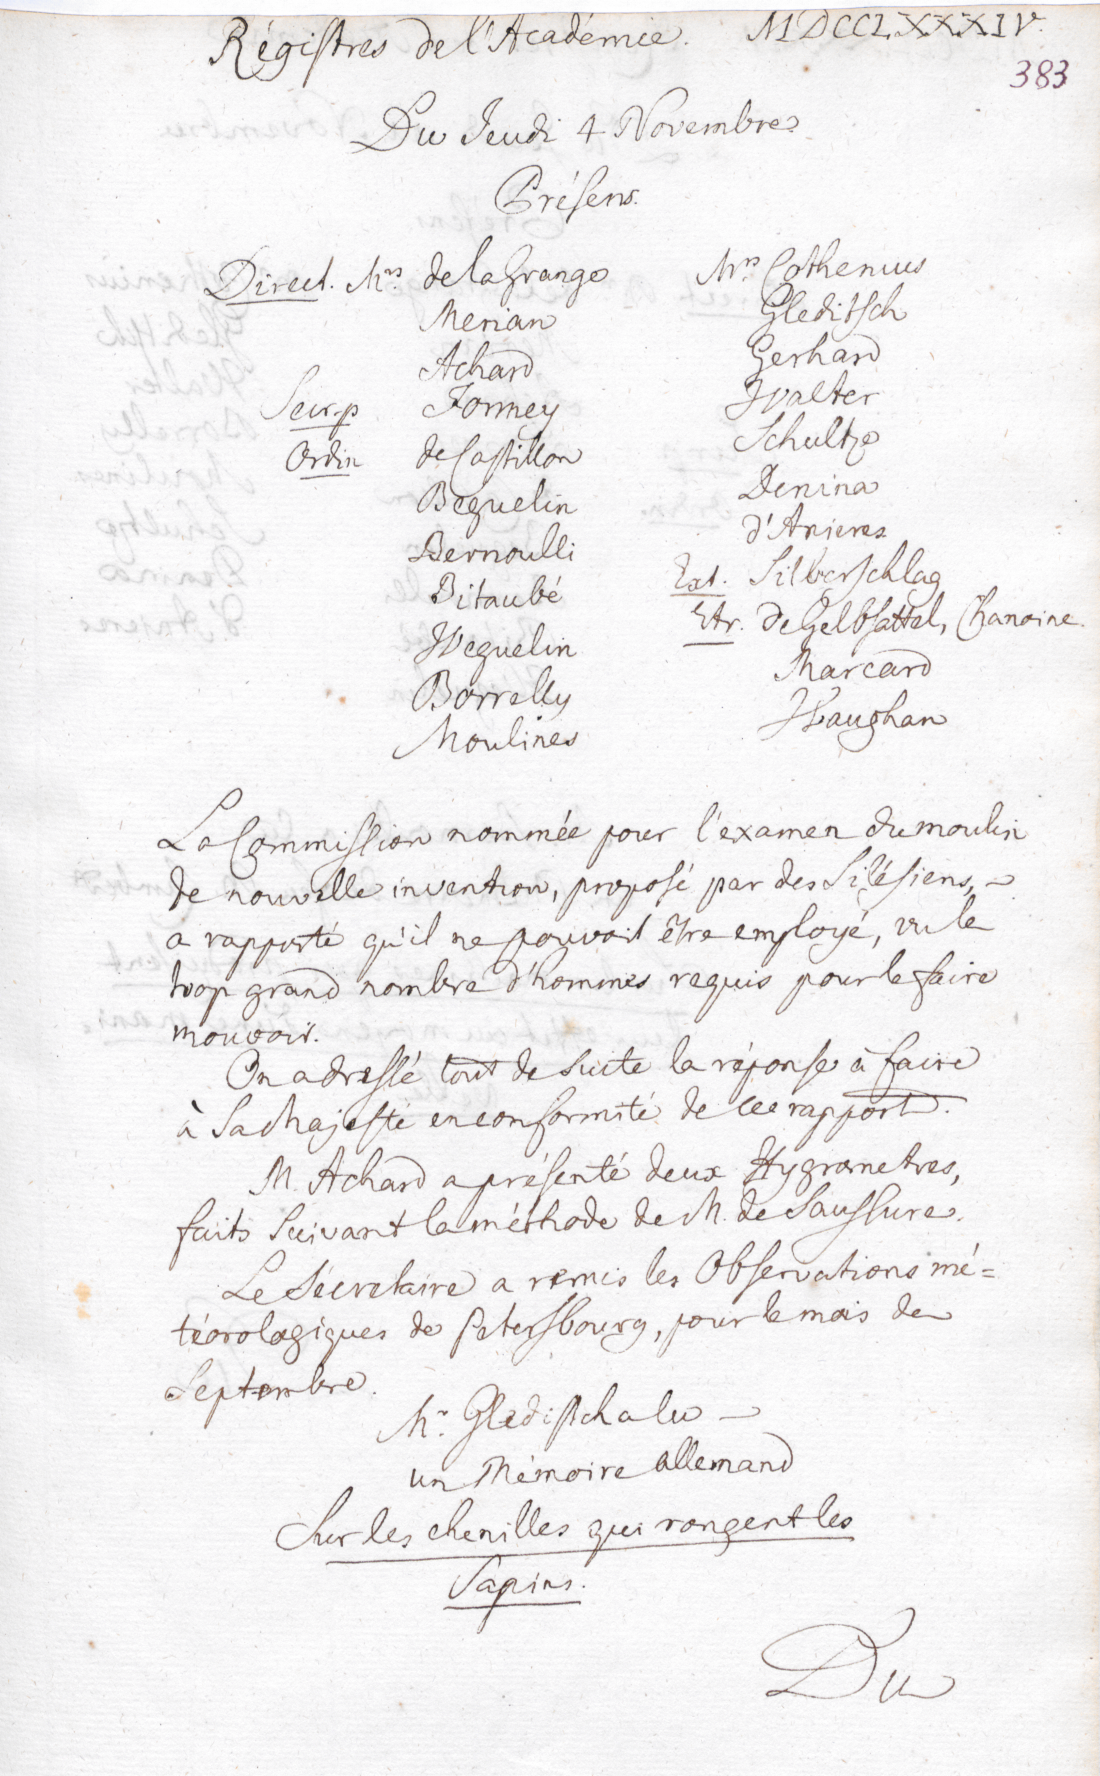 Régistres de l'Académie. MDCCLXXXIV.
383
Du Jeudi 4 Novembre
Présens.
Direct. Mrs de la Grange
Merian
Achard
Secr. p Formey
Ordin de Castillon
Beguelin
Bernoulli
Bitaubé
Weguelin
Borrelly
Moulines
Mrs Cothenius
Gleditsch
Gerhard
Walter
Schultze
Denina
d'Anieres
Ext. Silberschlag
Etr. de Gelbsattel, Chanoine
Marcard
Waughan
La Commission nommée pour l'examen du moulin
de nouvelle invention, proposé par des Silésiens,
a rapporté qu'il ne pouvoit être employé, vu le
trop grand nombre d'hommes requis pour le faire
mouvoir.
On a dressé tout de suite la réponse à faire
à Sa Majesté en conformité de ce rapport.
M. Achard a présenté deux Hygrometres,
faits suivant la méthode de M. de Saussure.
Le Sécretaire a remis les Observations mé=
téorologiques de Petersbourg, pour le mois de
Septembre.
Mr. Gleditsch a lu
un Mémoire allemand
Sur les chenilles qui rongent les
Sapins.
Du